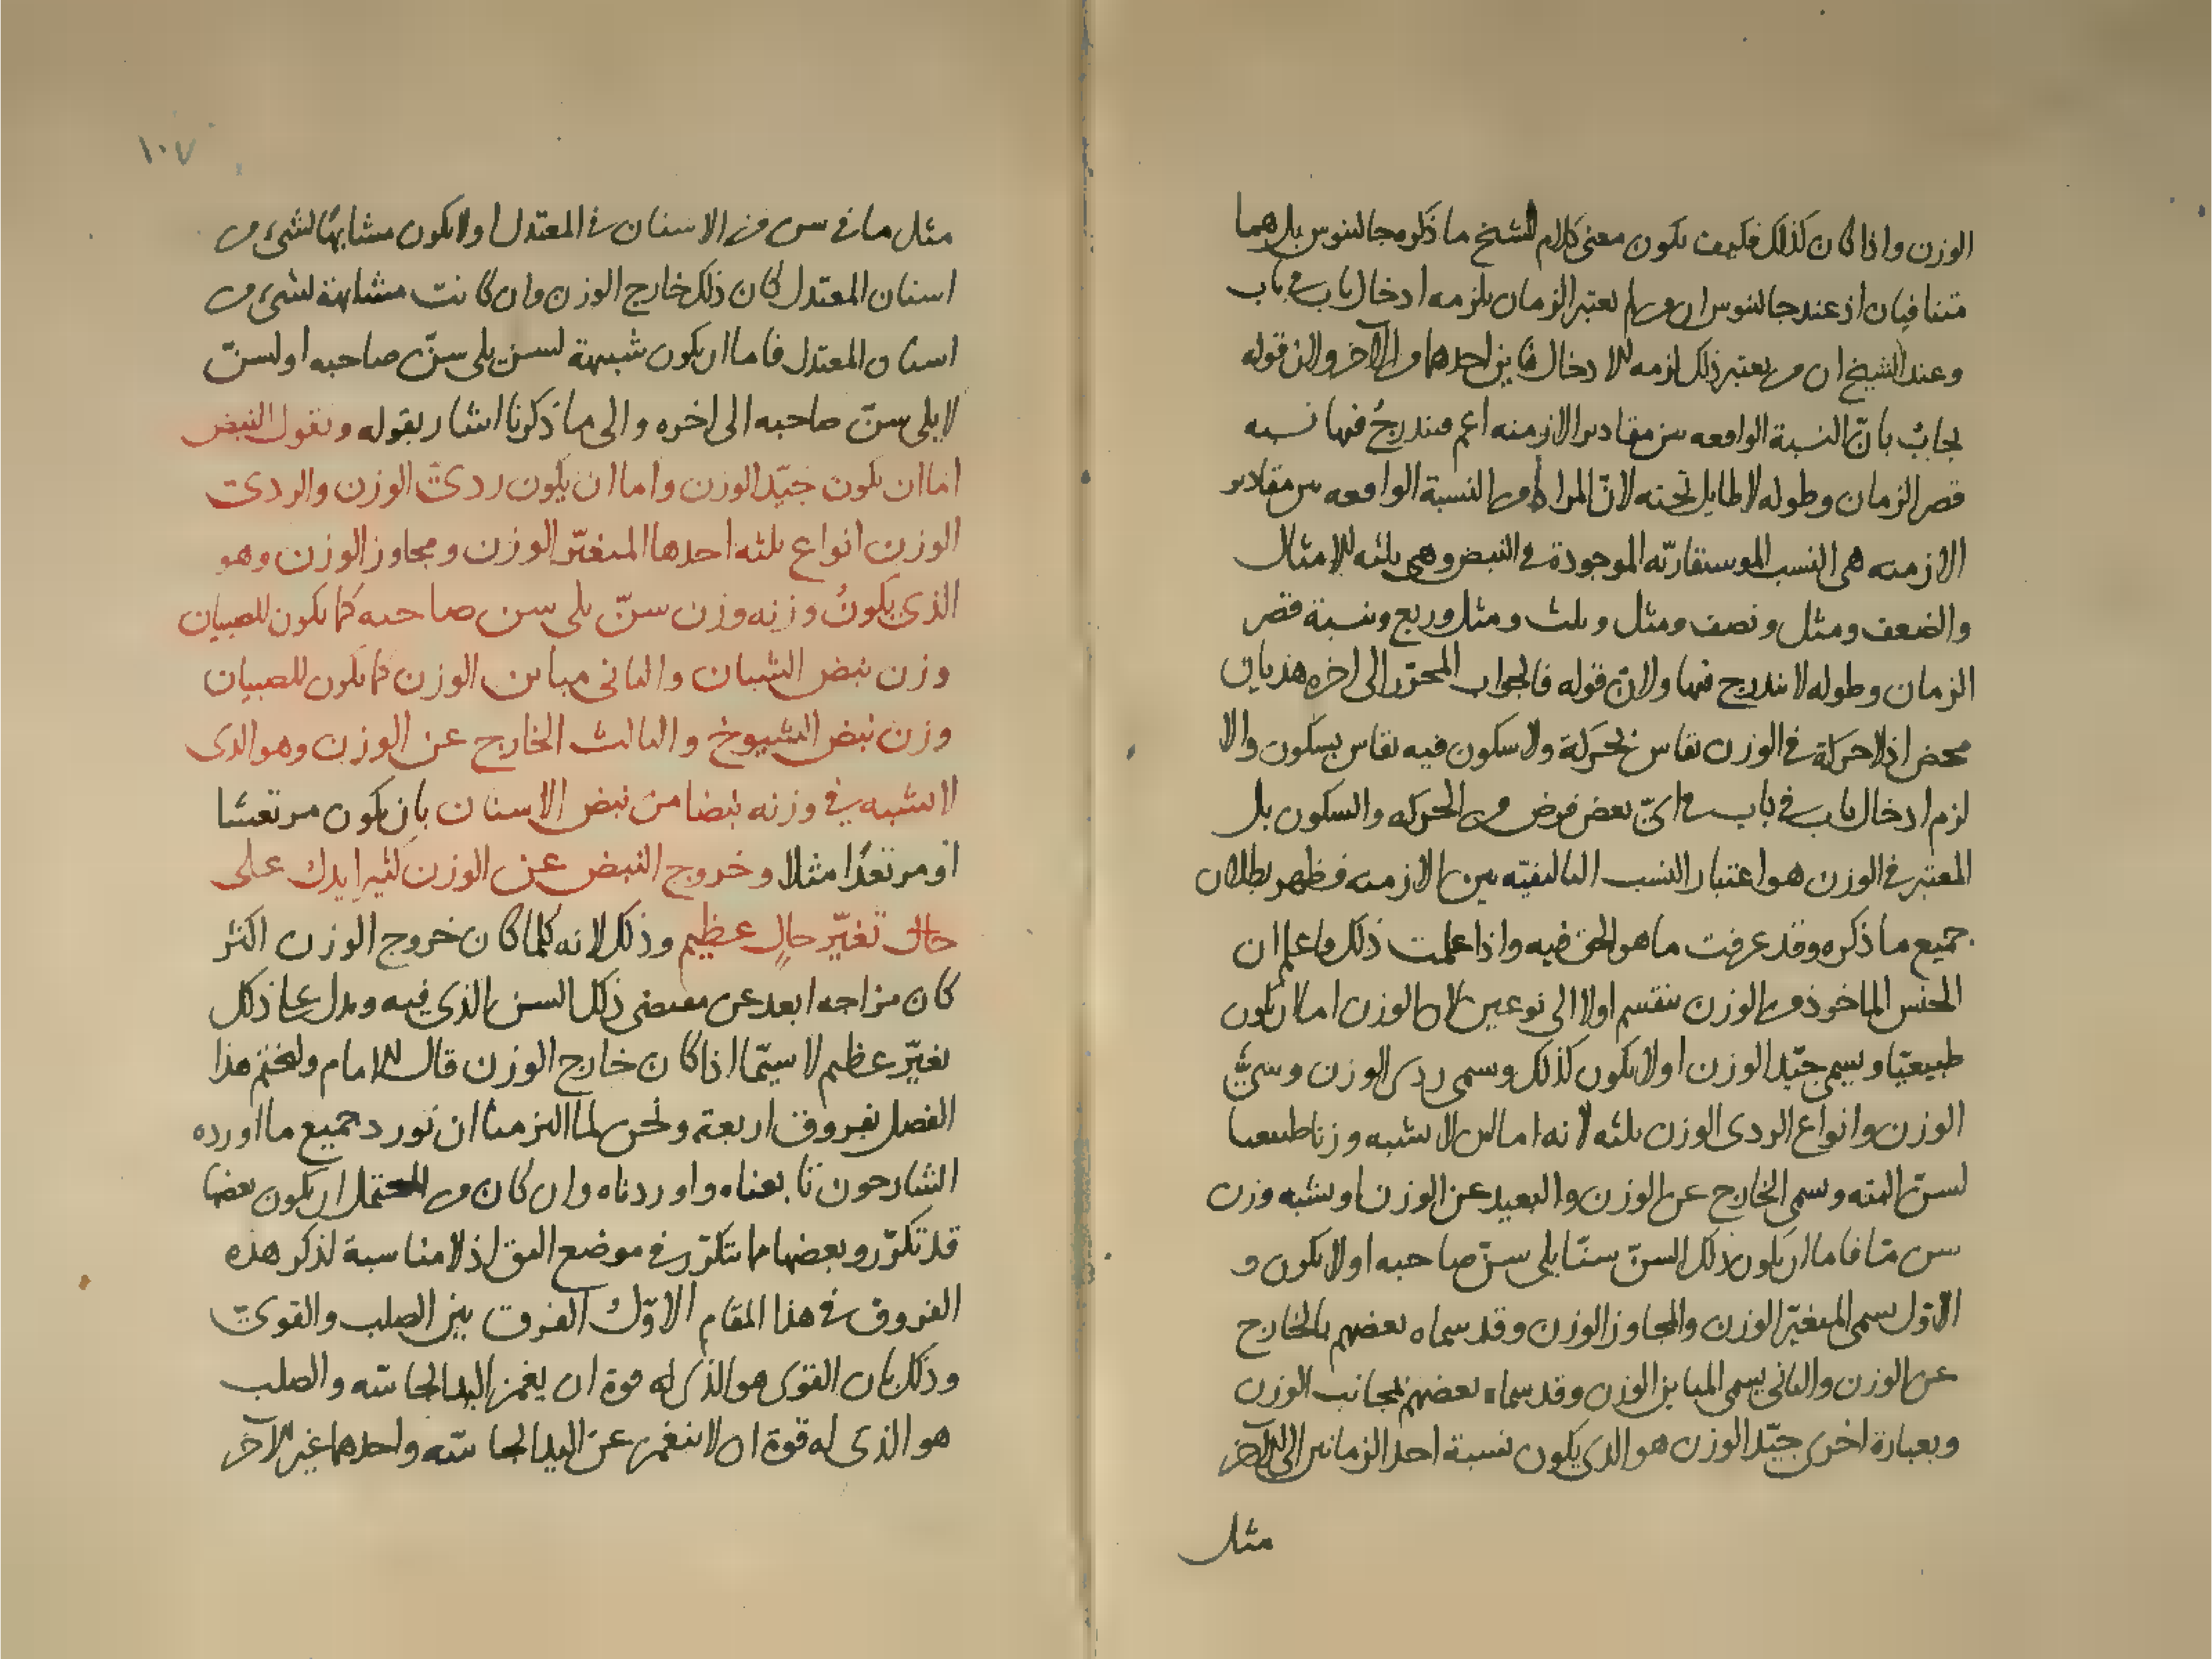 الوزن واذا كان كذلك فكيف يكون معنى كلام الشيخ ما ذكره جالينوس بل هما
متنافيان اذ عند جالينوس ان من لم يعتبر الزمان يلزمه ادخال باب في باب
وعند الشيخ ان من يعتبر ذلك لزمه الادخال فاين احدهما من الآخر ولان قوله
يجاب بانّ النسبة الواقعه بين مقادير الازمنه اعم فيندرجُ فيها نسبه
قصر الزمان وطوله لا طايل تحته لانّ المراد من النسبة الواقعه بين مقادير
الازمنه هي النسب الموسيقاريّه الموجودة في النبض وهي ثلثه الامثال
والضعف ومثل ونصف ومثل وثلث ومثل وربع ونسبة قصر
الزمان وطوله لا تندرج فيها ولانّ قوله فالجواب المحرّر الى اخره هذيان
محض اذ لا حركة في الوزن تقاس بحركة ولا سكون فيه تقاس بسكون والا
لزم ادخال باب في باب من اىّ بعض فرض من الحركه والسكون بل
المعتبر في الوزن هو اعتبار النسب التاليفيّه بين الازمنه فظهر بطلان
جميع ما ذكره وقد عرفت ما هو الحق فيه واذا علمت ذلك فاعلم ان
الجنس الماخوذ من الوزن ينقسم اولا الى نوعين لان الوزن اما ان يكون
طبيعيّا ويسمى جيّد الوزن اولا يكون كذلك ويسمى ردى الوزن وسيّئ
الوزن وانواع الردى الوزن ثلثه لانه اما ان لا يشبه وزنا طبيعيا
لسنّ البته ويسمى الخارج عن الوزن والبعيد عن الوزن او يشبه وزن
سن ما فاما ان يكون ذلك السنّ سنّا يلى سنّ صاحبه اولا يكون و
الاوّل يسمى المتغيّر الوزن والمجاوز الوزن وقد سماه بعضهم بالخارج
عن الوزن والثانى يسمى المباين الوزن وقد سماه بعضهم بمجانب الوزن
وبعبارة اخرى جيّد الوزن هو الذى يكون نسبة احد الزمانين الى الآخر
مثل
١٠٧
مثل ما في سن من الاسنان في المعتدل اولا يكون مشابهًا لشئ من
اسنان المعتدل كان ذلك خارج الوزن وان كانت مشابهة لشئ من
اسنان المعتدل فاما ان يكون شبيهة لسن يلى سنّ صاحبه او لسنّ
لا يلى سنّ صاحبه الى اخره والى ما ذكرنا اشار بقوله ونقول النبض
اما ان يكون جيّد الوزن واما ان يكون ردئ الوزن والردئ
الوزن انواع ثلثه احدها المتغيّر الوزن ومجاوز الوزن وهو
الذى يكونُ وزنه وزن سنّ يلى سن صاحبه كما يكون للصبيان
وزن نبض الشبان والثانى مباين الوزن كما يكون للصبيان
وزن نبض الشيوخ والثالث الخارج عن الوزن وهو الذى
لا يشبه في وزنه نبضا من نبض الاسنان بان يكون مرتعشا
او مرتعدًا مثلا وخروج النبض عن الوزن كثيرا يدل على
حال تغيّر حالٍ عظيم وذلك لانه كلما كان خروج الوزن اكثر
كان مزاجه ابعد عن مقتضى ذلك السن الذى فيه ويدل على ذلك
تغيّر عظيم لا سيّما اذا كان خارج الوزن قال الامام ولنختم هذا
الفصل بفروق اربعة ونحن لما التزمنا ان نورد جميع ما اورده
الشارحون تابعناه واوردناه وان كان من المحتمل ان يكون بعضها
قد تكرّر وبعضها مما يتكرّر في موضع اليق اذ لا مناسبة لذكر هذه
الفروق في هذا المقام الاوّل الفرق بين الصلب والقوىّ
وذلك بان القوى هو الذى له قوة ان يغمز اليد الجاسّه والصلب
هو الذى له قوة ان لا ينغمز عن اليد الجاسّه واحدهما غير الآخر